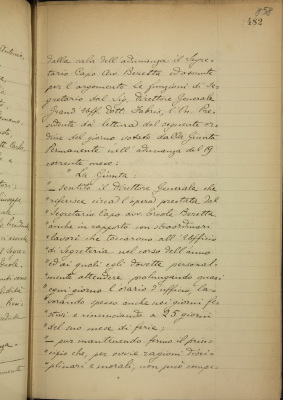 858
482
dalla sala dell'adunanza il Segre-
tario Capo Avv. Beretta ed assunte
per l'argomento le funzioni di Se-
gretario dal Sig. Direttore Generale
Grand'Uff. Dott. Fabris, il Sr. Pre-
sidente dà lettura del seguente or-
dine del giorno votato dalla Giunta
Permanente nell'adunanza del 19
corrente mese:
" La Giunta:
"— sentito il Direttore Generale che
"riferisce circa l'opera prestata dal
"Segretario Capo avv. Ercole Beretta
"anche in rapporto con straordinari
"lavori che toccarono all'Ufficio
"di Segreteria nel corso dell'anno
"ed ai quali egli dovette personal-
"mente attendere prolungando quasi
"ogni giorno l'orario d'ufficio, la-
"vorando spesso anche nei giorni fe-
"stivi e rinunciando a 25 giorni
"del suo mese di ferie;
"— pur mantenendo fermo il prin-
"cipio che, per ovvie ragioni disci-
"plinari e morali, non può compe-